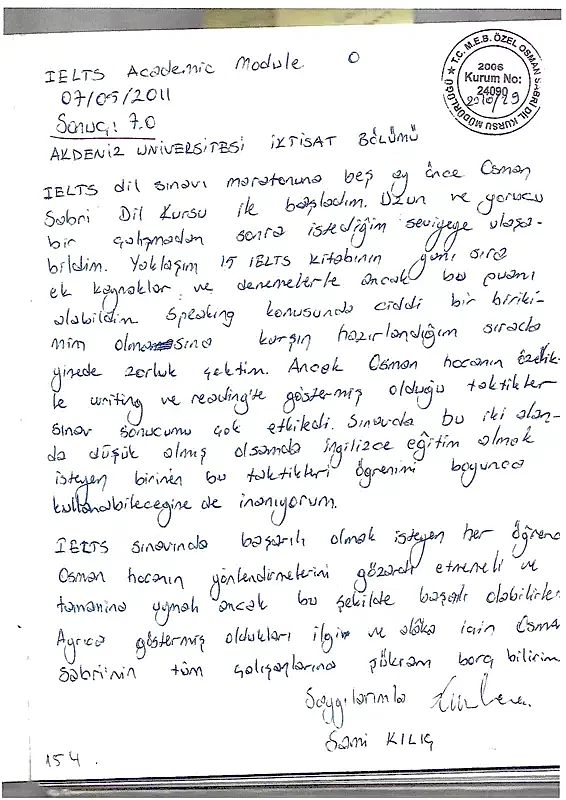 IELTS Academic Module O
07/05/2011
Sonuç: 7.0
AKDENİZ ÜNİVERSİTESİ İKTİSAT BÖLÜMÜ
★ T.C. M.E.B. ÖZEL OSMAN SABRİ DİL KURSU MÜDÜRLÜĞÜ
2006
Kurum No:
24090
IELTS dil sınavı maratonuna beş ay önce Osman
Sabri Dil Kursu ile başladım. Uzun ve yorucu
bir çalışmadan sonra istediğim seviyeye ulaşa-
bildim. Yaklaşım 15 IELTS kitabının yanı sıra
ek kaynaklar ve denemelerle ancak bu puanı
alabildim. Speaking konusunda ciddi bir biriki-
mim olmasına karşın hazırlandığım sırada
yinede zorluk çektim. Ancak Osman hocanın özellik-
le writing ve reading'te göstermiş olduğu taktikler
sınav sonucumu çok etkiledi. Sınavda bu iki alan-
da düşük almış olsamda ingilizce eğitim almak
isteyen birinin bu taktikleri öğrenimi boyunca
kullanabileceğine de inanıyorum.
IELTS sınavında başarılı olmak isteyen her öğrenc
Osman hocanın yönlendirmelerini gözardı etmemeli ve
tamamına uymalı ancak bu şekilde başarılı olabilirler
Ayrıca göstermiş oldukları ilgi ve alaka için Osma
Sabri'nin tüm çalışanlarına şükranı borç bilirim
Saygılarımla
Sami KILIÇ
154.